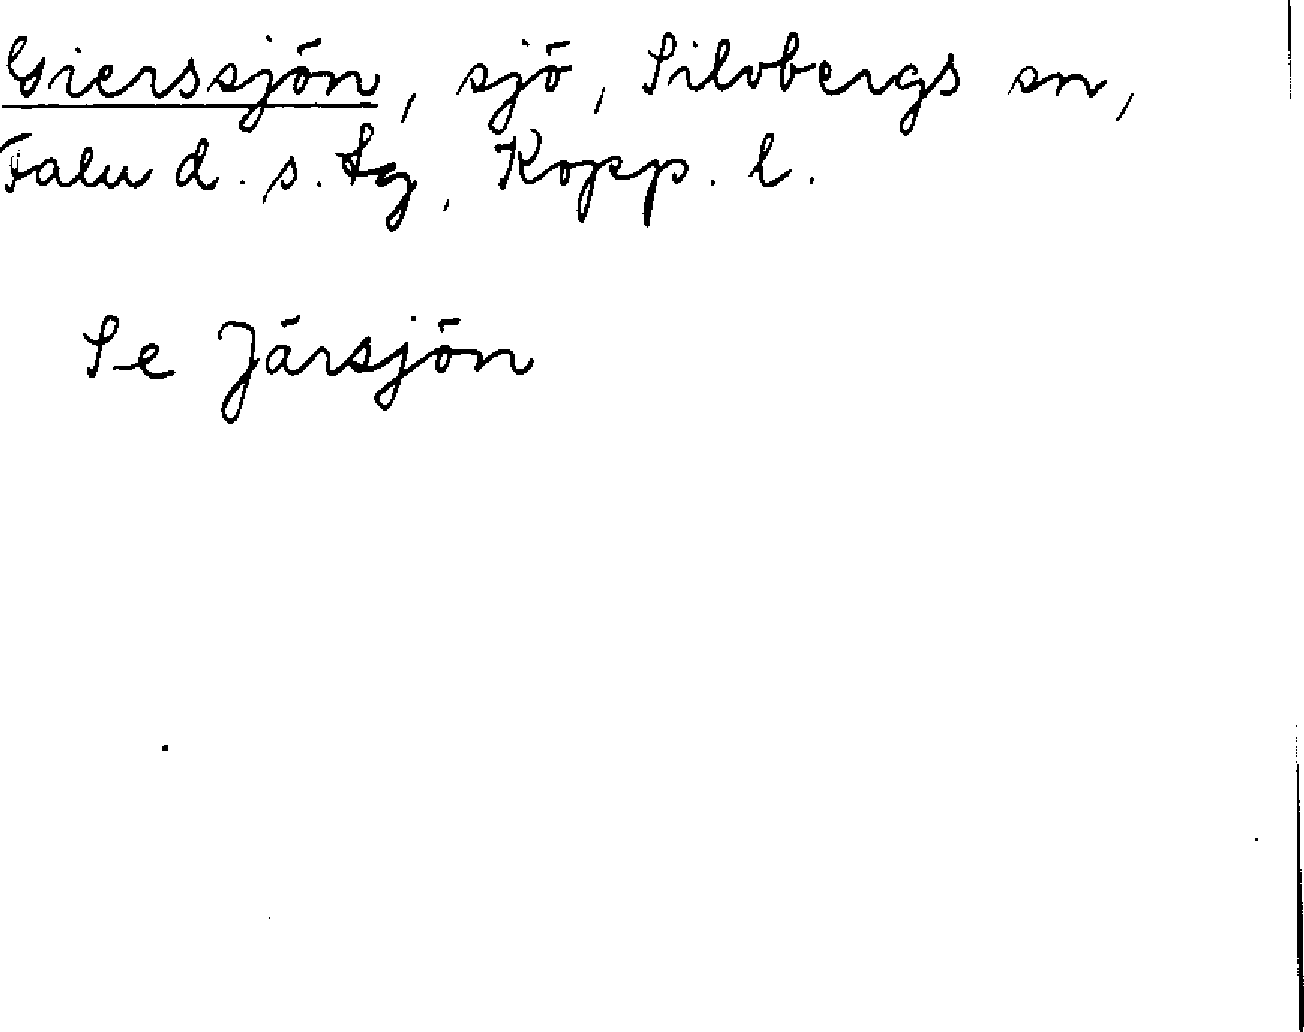 Gierssjön, sjö, Silvbergs sn,
Falu d. s. tg, Kopp. l.
Se Järsjön